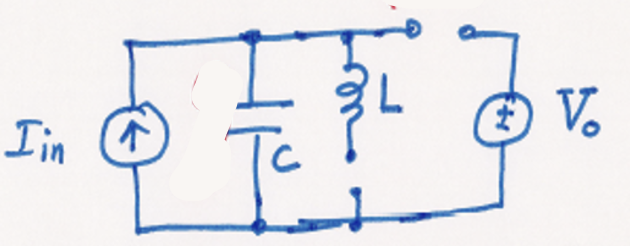 I in
C
L
±
V₀